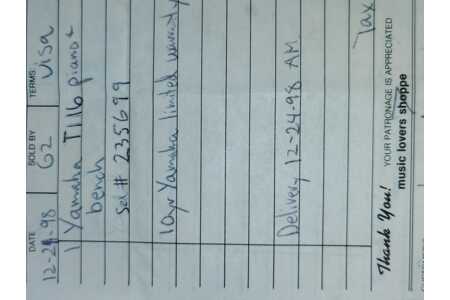 DATE SOLD BY TERMS
12-21-98 62 Visa
1 Yamaha T116 piano &
bench
Ser # 235699
10 yr Yamaha limited warranty
Delivery 12-24-98 AM
Tax
Thank You! YOUR PATRONAGE IS APPRECIATED
music lovers shoppe